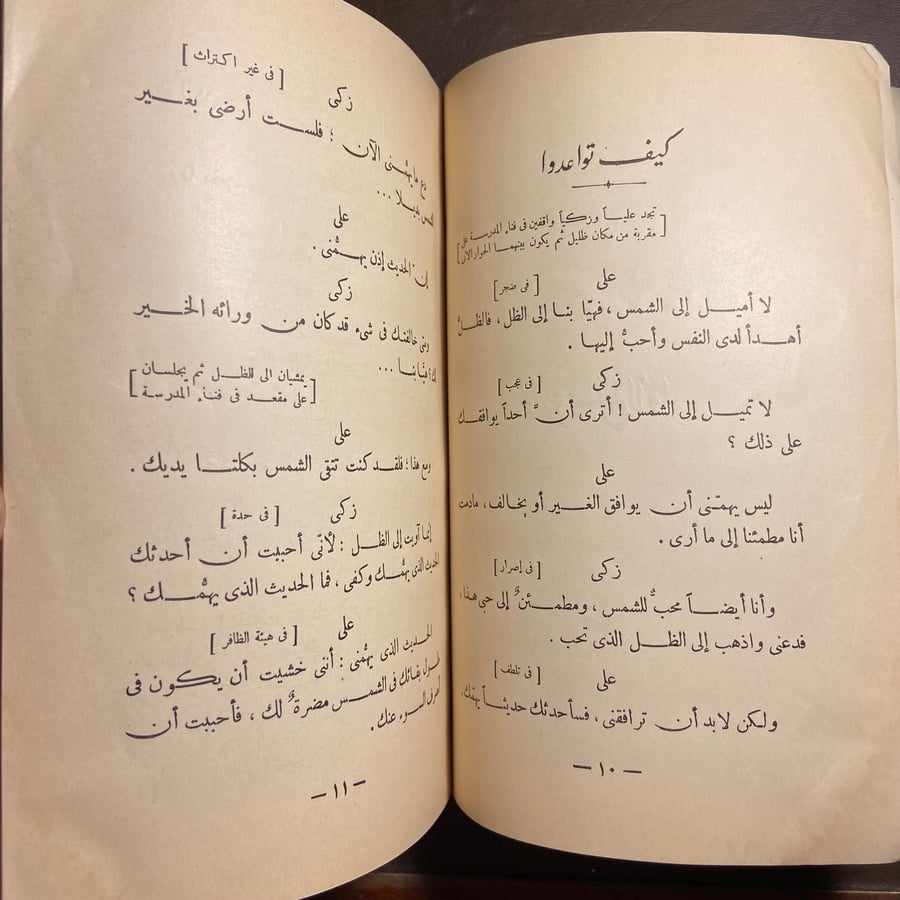 كيف تواعدوا
[ تجد علياً وزكياً واقفين فى فناء المدرسة على
مقربة من مكان ظليل ثم يكون بينهما الحوار الآتى ]
على
[ فى ضجر ]
لا أميل إلى الشمس ، فهيّا بنا إلى الظل ، فالظلُّ
أهدأ لدى النفس وأحبُّ إليها .
زكى
[ فى عجب ]
لا تميل إلى الشمس ! أترى أنَّ أحداً يوافقك
على ذلك ؟
على
ليس يهمّنى أن يوافق الغير أو يخالف ، مادمت
أنا مطمئنا إلى ما أرى .
زكى
[ فى إصرار ]
وأنا أيضاً محبٌّ للشمس ، ومطمئنٌ إلى حبى هذا ،
فدعنى واذهب إلى الظل الذى تحب .
على
[ فى تلطف ]
ولكن لابد أن ترافقنى ، فسأحدثك حديثاً يهمك .
— ١٠ —
[ فى غير اكتراث ]
زكى
دع ما يهمّنى الآن ؛ فلست أرضى بغير
الشمس بديلا ...
على
إن الحديث إذن يهمُّنى .
زكى
ومن خالفنك فى شىء قد كان من ورائه الخير
لك ؟ هيَّا بنا ...
[ يمشيان الى الظل ثم يجلسان
على مقعد فى فناء المدرسة ]
على
ومع هذا ؛ فلقد كنت تتقى الشمس بكلتا يديك .
زكى
[ فى حدة ]
إنما آويت إلى الظل : لأنّى أحببت أن أحدثك
الحديث الذى يهمُّك وكفى ، فما الحديث الذى يهمُّك ؟
على
[ فى هيئة الظافر ]
الحديث الذى يهمُّنى : أننى خشيت أن يكون فى
طول بقائك فى الشمس مضرةٌ لك ، فأحببت أن
أصرف السوء عنك .
— ١١ —